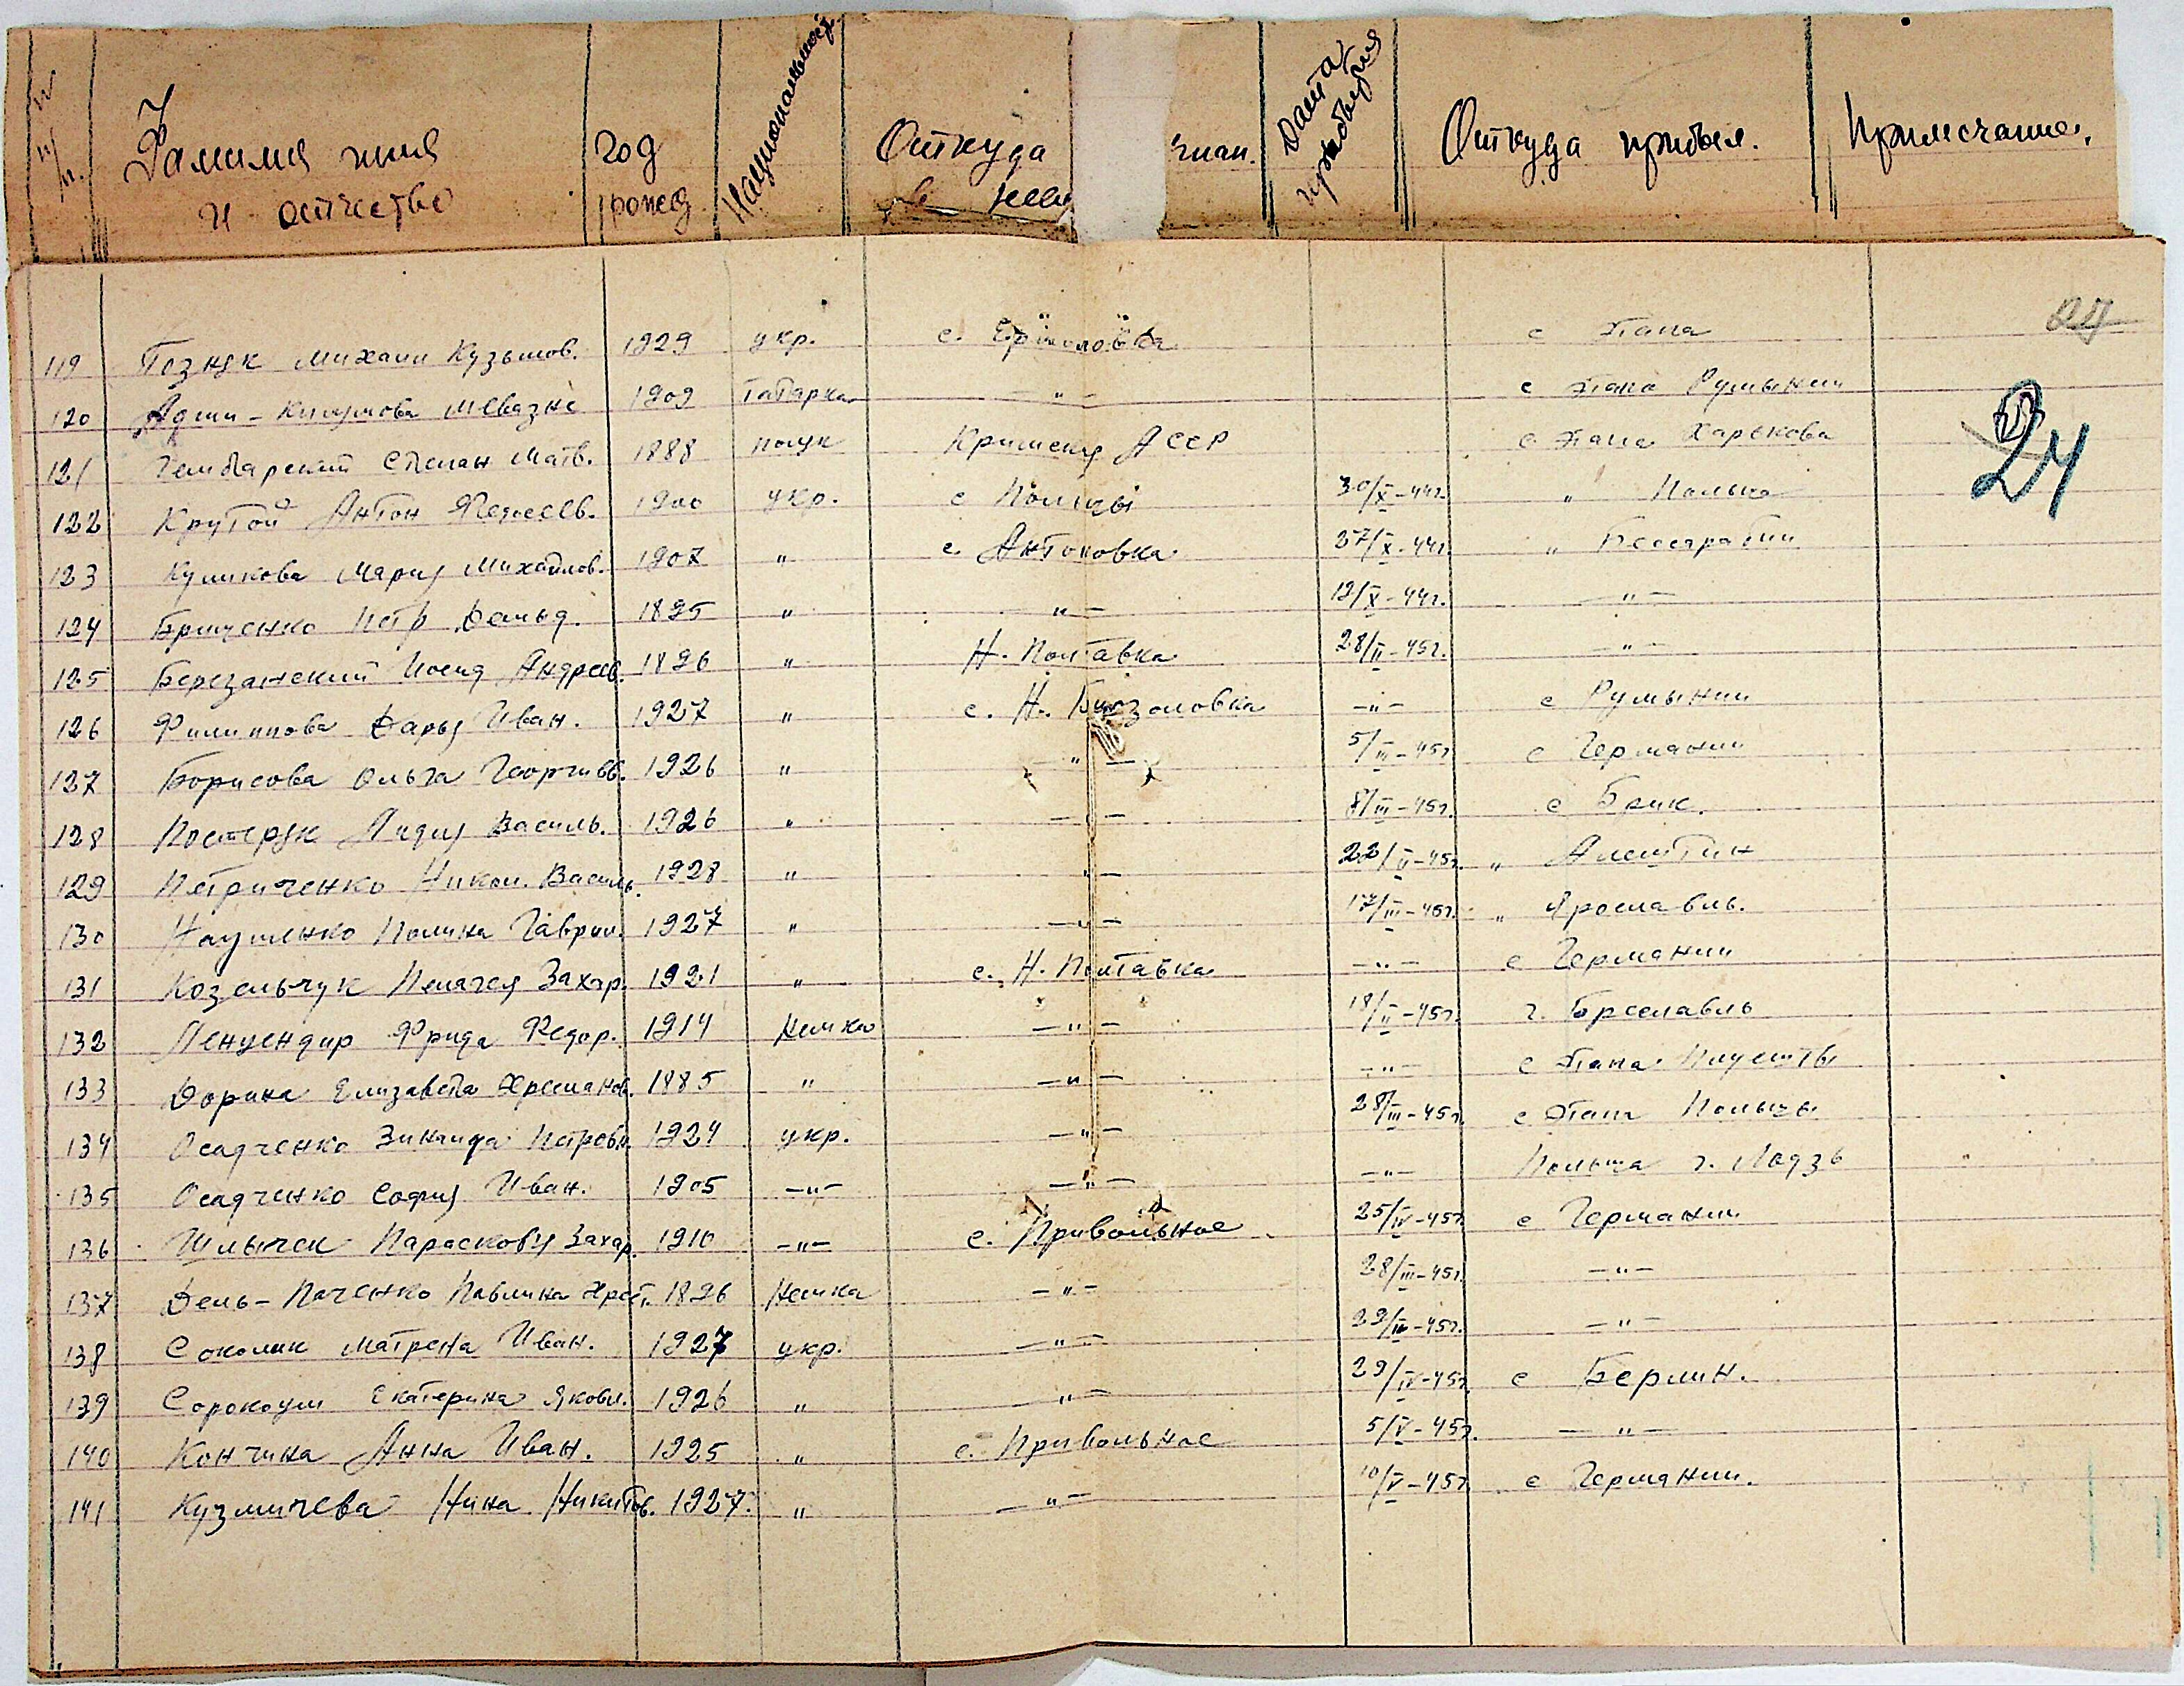 № п/п. Фамилия имя и отчество Год рожд. Национальность Откуда в нем дата прибытия Откуда прибыл. Примечание.
24
119 Позняк Михаил Кузьмов. 1929 укр. с. Ермоловка с Этапа
120 1909 татарка —"— с Этапа Румынии
24
121 Степан Матв. 1888 поляк Крымская АССР с Этапа Харькова
122 Крутой Антон 1900 укр. с Польщи 30/X-44г. " Польша
123 Куликова Мария Михайлов. 1907 " с. Антоновка 27/X-44г. " Бессарабии
124 Грищенко Петр Демьяд. 1895 " —"— 12/X-44г. —"—
125 Березанский Иосид Андреев. 1896 " Н. Полтавка 28/II-45г. —"—
126 Филиппова Дарья Иван. 1927 " с. Н. —"— с Румынии
127 Борисова Ольга Георгиев. 1926 " —"— 5/III-45г. с Германии
128 Лидия Василь. 1926 " —"— 8/III-45г. с Брик.
129 Петриченко Никол. Василь. 1928 " —"— 22/II-45г. "
130 Науменко Полина Гаврил. 1927 " —"— 17/III-45г. " Ярославль.
131 Козельчук Пелагея Захар. 1921 " с. Н. Полтавка —"— с Германии
132 Фрида Федор. 1914 Немка —"— 18/II-45г. г. Бреславль
133 Дорина Елизавета 1885 " —"— —"— с Этапа Плуешты
134 Осадченко Зинаида Петровн. 1924 укр. —"— 28/III-45г. с Этапа Польчы
135 Осадченко София Иван. 1905 —"— —"— —"— Польша г. Лодзь
136 Парасковья Захар. 1910 —"— с. Привольное 25/IV-45г. с Германии
137 Павлина Хрест. 1896 Немка —"— 28/III-45г. —"—
138 Соколик Матрена Иван. 1927 укр. —"— 29/III-45г. —"—
139 Сорокоум Екатерина Яковл. 1926 " —"— 29/IV-45г. с Берлин.
140 Кончина Анна Иван. 1925 " с. Привольное 5/V-45г. —"—
141 Кузмичева Нина Никитов. 1927. " —"— 10/V-45г. с Германии.